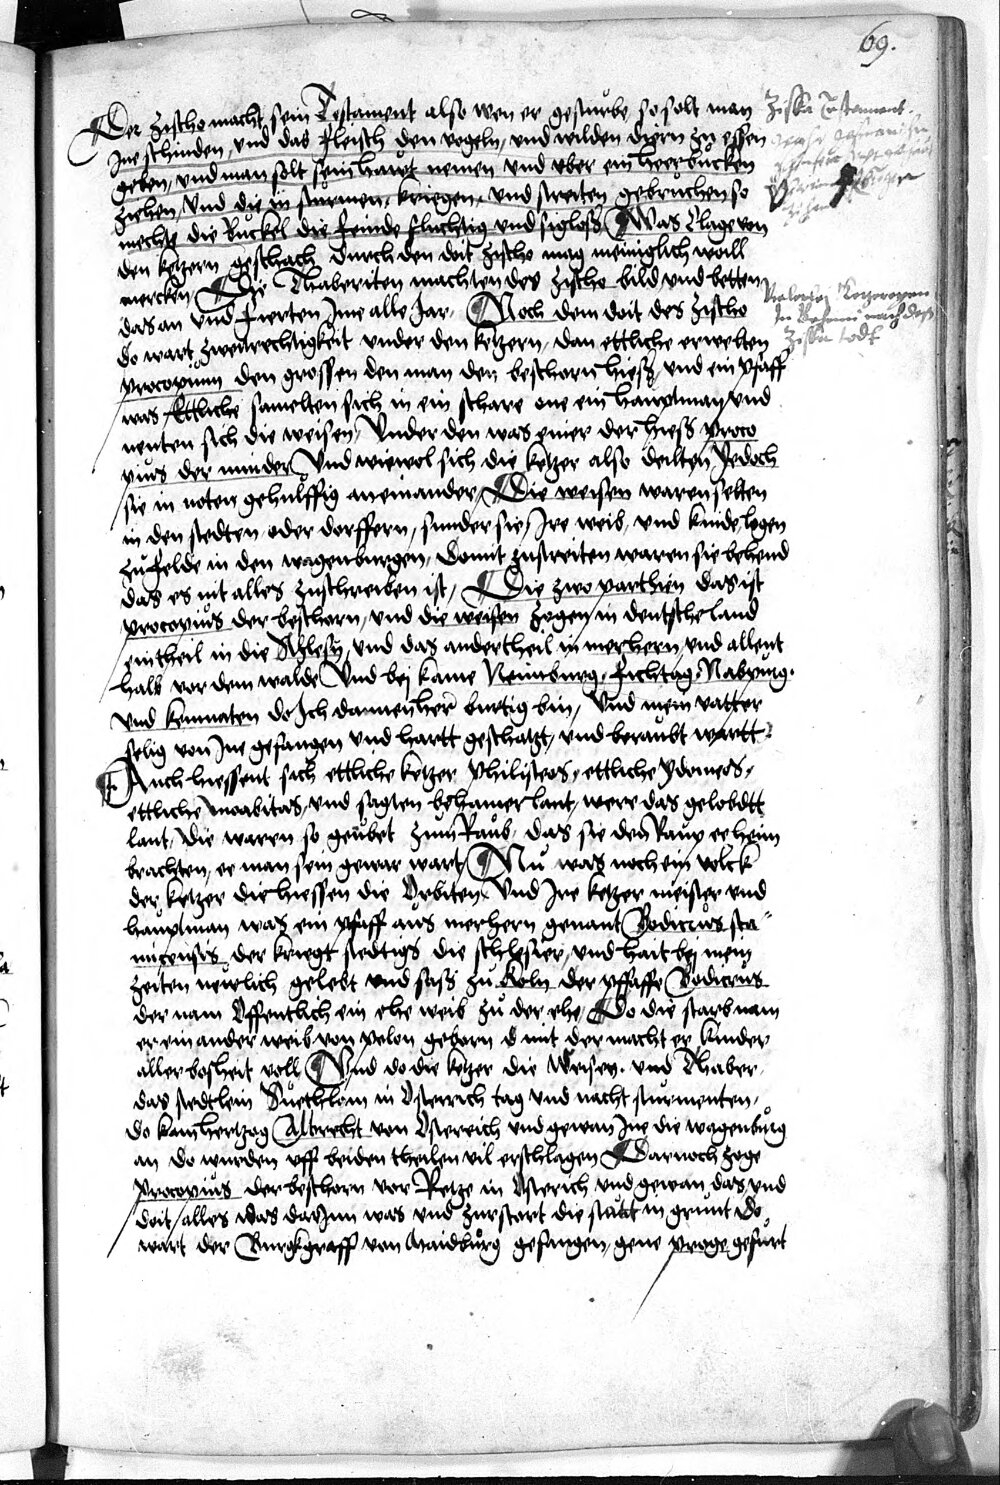 69.
Der Zischo macht sein Testament also wen er gesturbe, so solt man
Ziska Testament.
Ine schinden, und das fleisch den vogeln, und wilden diern zu essen
geben, und man solt sein haut nemen und uber ein heerbucken
ziehen, Und die in sturmen, kriegen, und streiten gebruchen so
mecht die Buckel die feinde fluchtig und sigloß Was clage von
den ketzern geschach durch den doit Zischo mag meiniglich woll
mercken Die Thaberiten machten des Zischo bild und betten
das an Und fierten Ime alle Jar. Noch dem doit des Zischo
In Behmen nach deß
Ziska todt
do wart zweitrechtigkeit under den ketzern, dan ettliche erwelten
procopium den grossen den man den beschorn hieß, und ein pfaff
was Ettliche samelten sich in ein schare one ein hauptman und
nenten sich die weisen, Under den was einer der hieß proco
pius der minder Und wiewol sich die ketzer also deilten Jedoch
sie in noten gehulffig aneinander, Die weisen waren selten
in den stedten oder dorffern, sunder sie, Ire weib, und kinde legen
zu felde in den wagenburgen, Domit zustreiten waren sie behend
das es nit alles zuschreiben ist, Die zwo parthien das ist
procopius der beschorn, und die weisen zogen in deutsche land
ein theil in die Schlesy, und das ander theil in merhern, und allent
halb vor dem walde Und bej kame Neunburg, fichtag, Nabpurg.
und kemnaten do Ich dannenher burtig bin, Und mein vatter
selig von Ine gefangen und hartt geschatzt, und beraubt wartt
Auch hiessent sich ettliche ketzer philisteos, ettliche ydomeos,
ettliche moabitas, und sagten behamer lant, were das gelobdtt
lant, die waren so geubet zum Raub, das sie den Raup ee heim
brachten, ee man sein gewar wart, Nu was noch ein volck
der ketzer die hiessen die Orbiten, Und Ine ketzer meister und
hauptman was ein pfaff aus merhern genant Bodicius sta
micensis der kriegt stedtigs die schlesier, und hait bej mein
zeiten neulich gelebt und saß zu Koln der pffaffe Bodicius
der nam Offentlich ein ehe weib zu der ehe Do die starb nam
er ein ander weib von polon geborn d mit der macht er kinder
aller bosheit voll Und do die ketzer die weisen. und Thaber.
das stedtlein in Osterrich tag und nacht sturmenten,
do kam hertzog Albrecht von Osterreich und gewan Ine die wagenburg
an do wurden uff beiden theilen vil erschlagen Darnoch zoge
procopius der beschorn vor Retze in Osterich und gewan das und
doit alles was darjnn was und zurstort die statt in grunt Do
wart der Burckgraff von Maidburg gefangen, gene proge gefurt